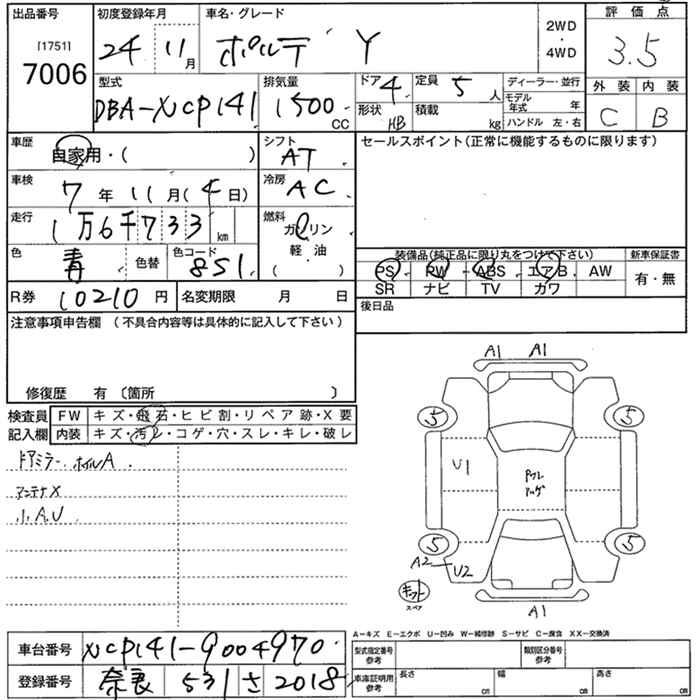 出品番号 初度登録年月 車名・グレード 評価点
[1751] 2WD
7006 24 11月 ポルテ Y ・ 3.5
4WD
型式 排気量 ドア 4 定員 5人 ディーラー・並行 外装 内装
DBA-NCP141 1500 CC 形状 HB 積載 kg モデル年式 年 C B
ハンドル 左・右
車歴 自家用・( ) シフト AT セールスポイント(正常に機能するものに限ります)
車検 7年11月(4日) 冷房 AC
走行 1万6千733km 燃料 ガソリン
軽・油
( )
色 青 色替 色コード 851 装備品(純正品に限り丸をつけて下さい) 新車保証書
PS PW ABS エアB AW 有・無
SR ナビ TV カワ
R券 10210円 名変期限 月 日 後日品
注意事項申告欄 (不具合内容等は具体的に記入して下さい)
修復歴 有 〔箇所 〕
検査員 FW キズ・飛石・ヒビ割・リペア跡・X要
記入欄 内装 キズ・汚レ・コゲ・穴・スレ・キレ・破レ
ドアミラー・ホイルA
アンテナX
小A.U
A1 A1
5 5
U1
5 5
A2 U2
スペア
A1
A－キズ E－エクボ U－凹み W－補修跡 S－サビ C－腐食 XX－交換済
車台番号 NCP141-9004970 型式指定番号 参考 類別区分番号 参考
登録番号 奈良 531 さ 2018 車庫証明用 参考 長さ cm 幅 cm 高さ cm